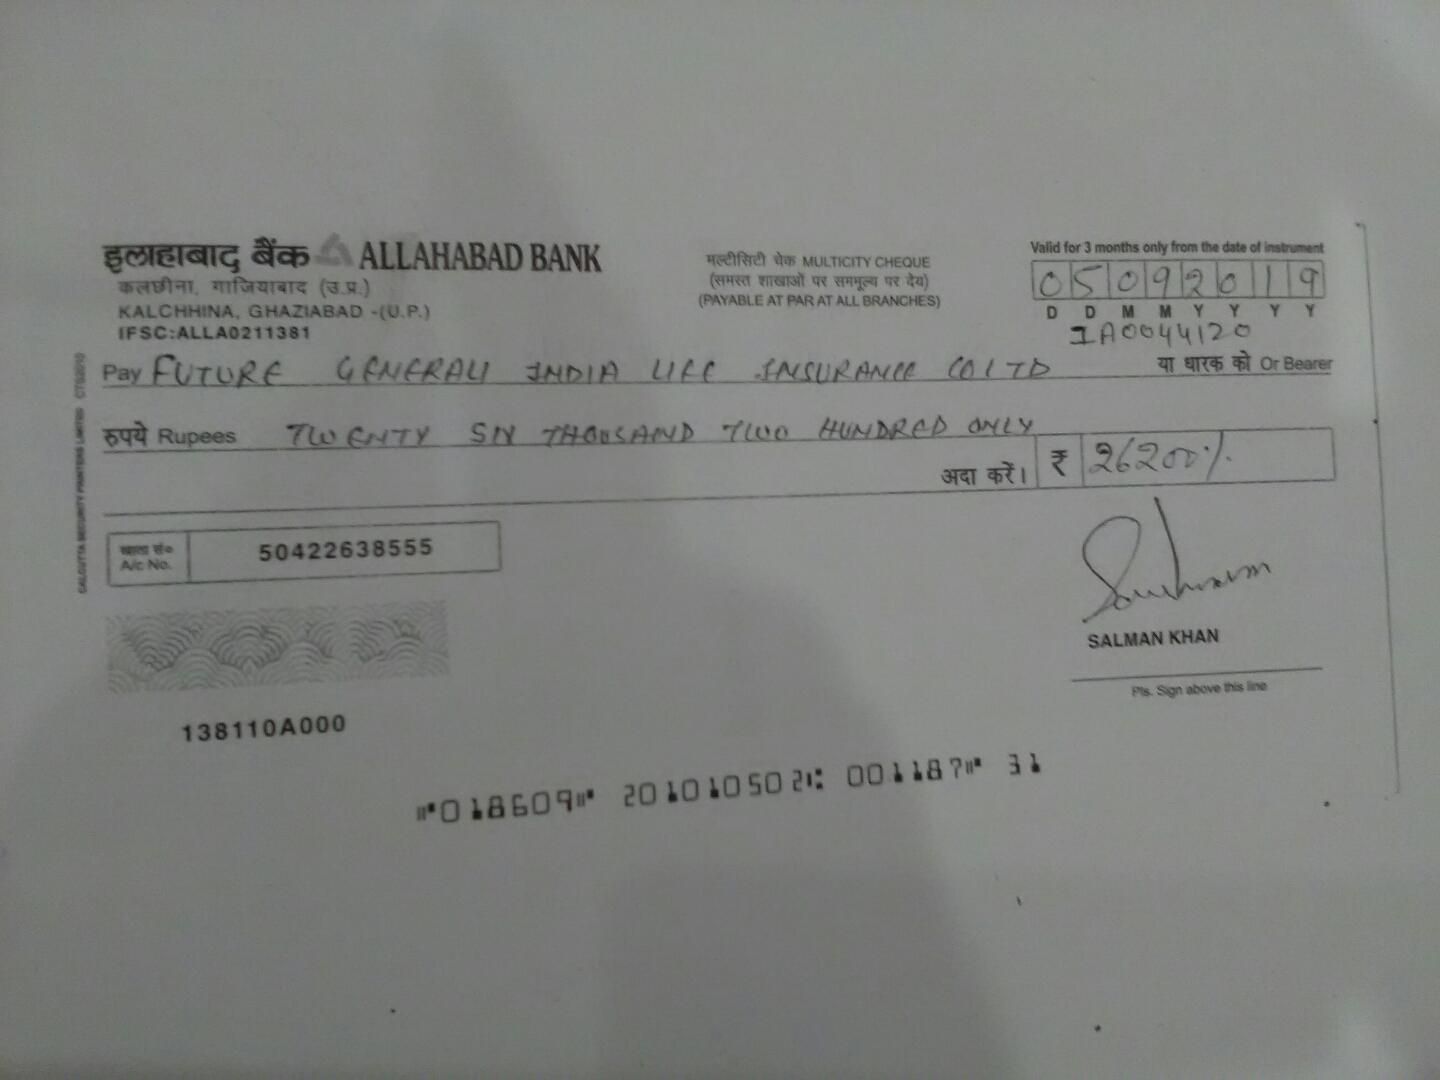 इलाहाबाद बैंक ALLAHABAD BANK
कलछीना, गाजियाबाद (उ.प्र.)
KALCHHINA, GHAZIABAD -(U.P.)
IFSC:ALLA0211381
मल्टीसिटी चेक MULTICITY CHEQUE
(समस्त शाखाओं पर सममूल्य पर देय)
(PAYABLE AT PAR AT ALL BRANCHES)
Valid for 3 months only from the date of instrument
05092019
D D M M Y Y Y Y
IA0044120
Pay FUTURE GENERALI INDIA LIFE INSURANCE CO LTD या धारक को Or Bearer
रुपये Rupees TWENTY SIX THOUSAND TWO HUNDRED ONLY
अदा करें। ₹ 26200/.
खाता सं०
A/c No. 50422638555
CALCUTTA SECURITY PRINTERS LIMITED CTS2010
SALMAN KHAN
Pls. Sign above this line
138110A000
⑈018609⑈ 201010502⑆ 001187⑈ 31